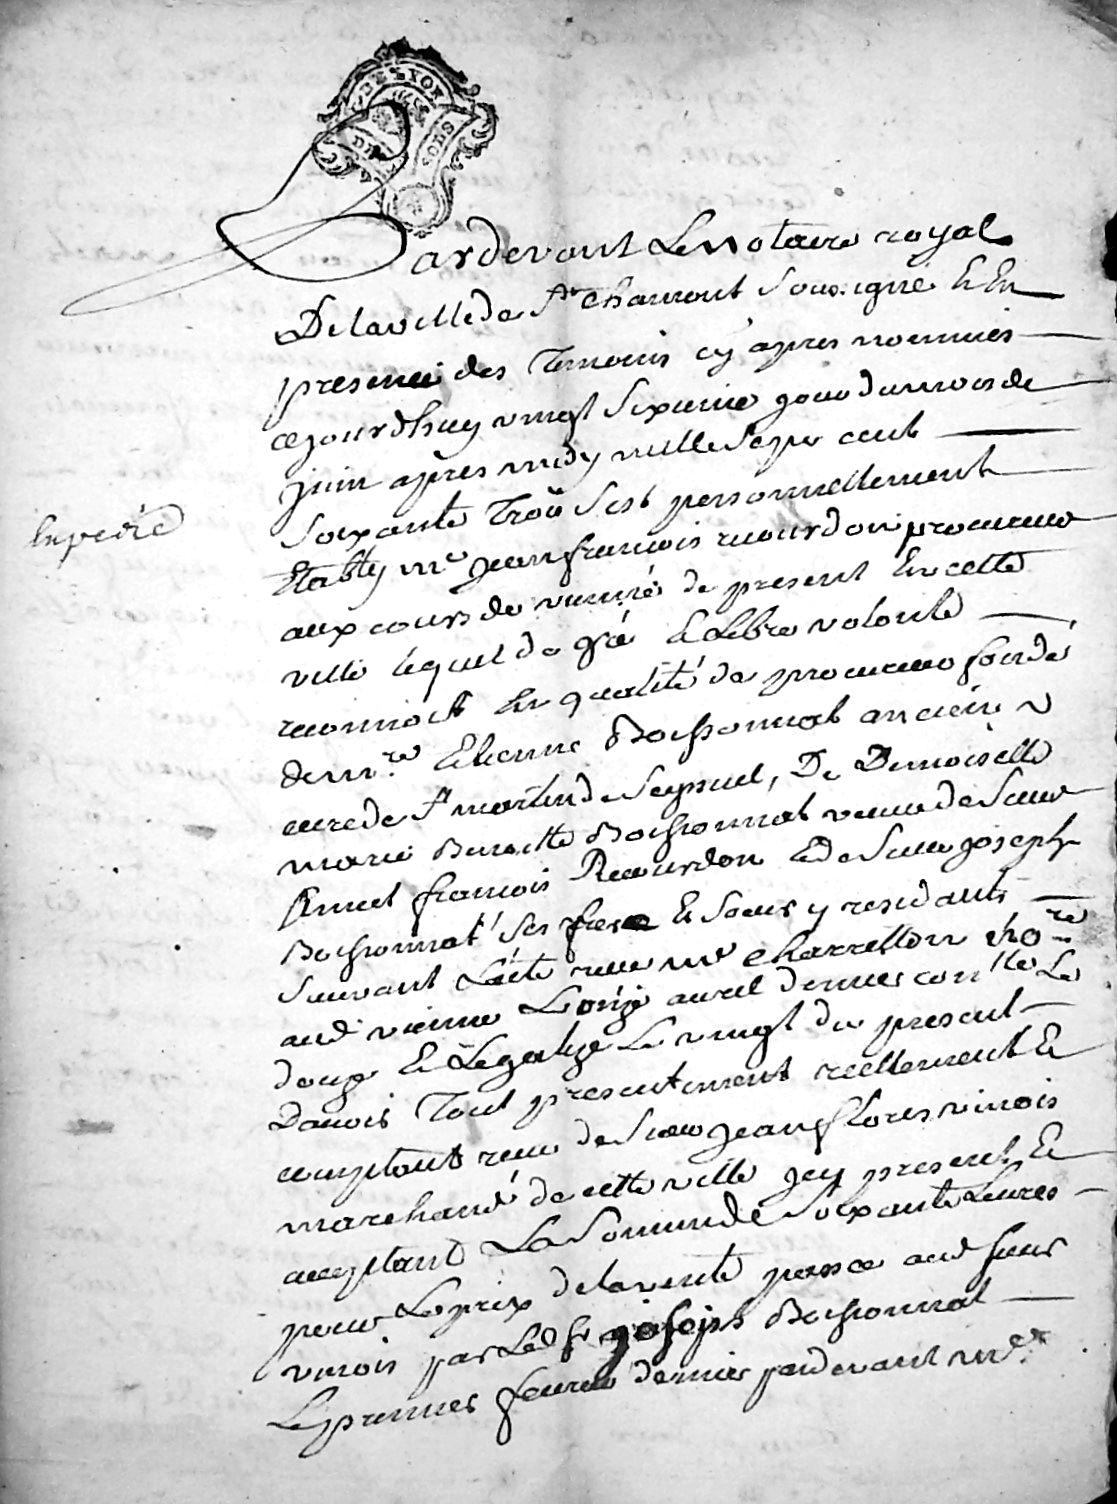 DE LYON
DEUX SOLS
Pardevant Le notaire royal
De la ville de St Chamont Soussigné Et En
presence des Temoins cy apres nommés
cejourdhuy vingt sixieme jour du mois de
juin apres midy mille Sept cent
Soixante Trois s'est personnellement
Etably Me jean francois reourdon procureur
aux cours de vienne de present En cette
ville lequel de gré Et Libre volonté
reconnoit En qualité de procureur fondé
de mre Etienne Boissonnat ancien
curé de St martin de Seyssuel, De Demoiselle
marie Benoitte Boissonnat veuve de Sieur
Annet francois Reourdon Et de Sieur joseph
Boissonnat ses frere Et Soeur y residants
Suivant L'acte receu Me Charretton nore
aud vienne L'onze avril dernier conllé Le
douze Et Legalizé Le vingt du present
Davoir Tout presentement reellement Et
comptant receu de Sieur jean flores vinois
marchand de cette ville jcy present Et
acceptant La Somme de Soixante Livres
pour Le prix de la vente passée aud sieur
vinois par Led Sr joseph Boissonnat
Le premier fevrier dernier pardevant Me
Expedié